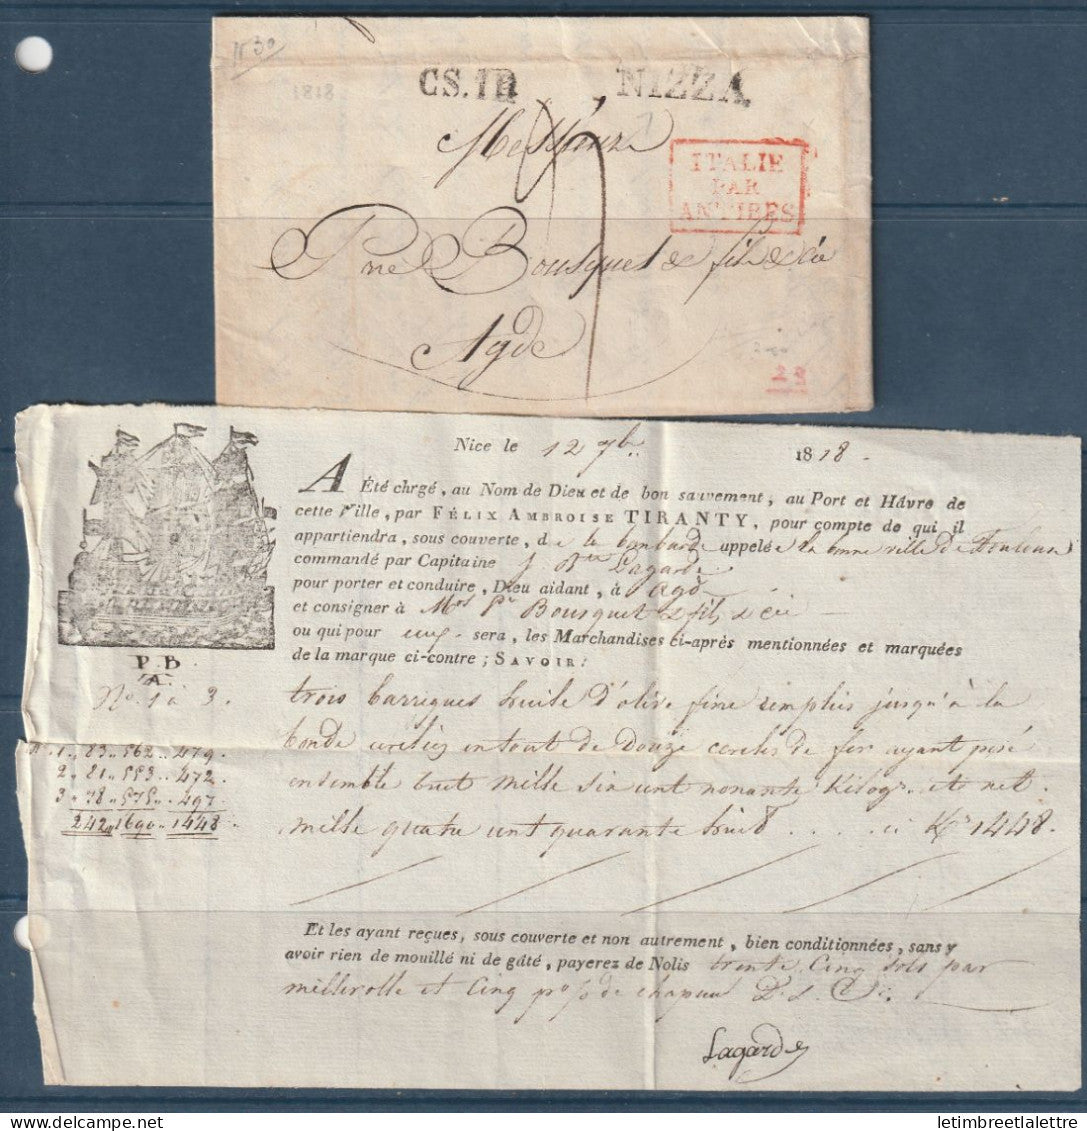 N 30
1818
CS.1R NIZZA
Messieurs
ITALIE
PAR
ANTIBES
Pre Bousquet & fils & Cie
Agde
22
Nice le 12 7bre 1818.
A Été chrgé, au Nom de Dieu et de bon sauvement, au Port et Hâvre de
cette Ville, par FÉLIX AMBROISE TIRANTY, pour compte de qui il
appartiendra, sous couverte, de la bombarde appelée la bonne ville de Toulon
commandé par Capitaine J. Bte Lagarde
pour porter et conduire, Dieu aidant, à Agde
et consigner à Mrs Pre Bousquet & fils & Cie
ou qui pour eux sera, les Marchandises ci-après mentionnées et marquées
de la marque ci-contre; SAVOIR:
P.B
A.
No. 1 à 3.
N. 1 „ 83 „ 562 „ 479.
2 „ 81 „ 553 „ 472.
3 „ 78 „ 575 „ 497.
242 „ 1690 „ 1448.
trois barriques huile d'olive fine remplies jusqu'à la
bonde cerclées en tout de douze cercles de fer ayant pesé
ensemble brut mille six cent nonante Kilogs. et net
mille quatre cent quarante huit . . . ci Ks 1448.
Et les ayant reçues, sous couverte et non autrement, bien conditionnées, sans y
avoir rien de mouillé ni de gâté, payerez de Nolis trente cinq sols par
millerolle et cinq p% de chapeau
Lagarde
letimbreetlalettre